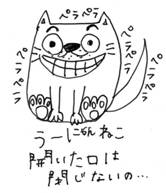 ペラペラ
ペラペラ
ペラペラ
うーにゃんねこ
開いた口は
閉じないの…